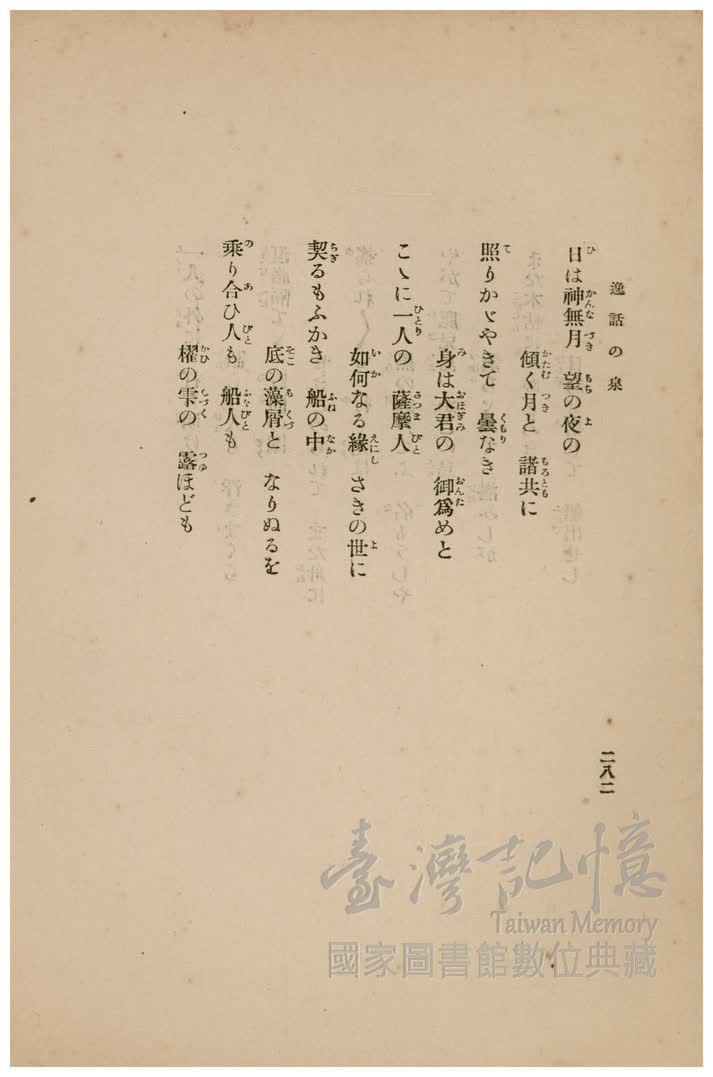 逸話の泉
日は神無月 望の夜の
傾く月と 諸共に
照りかゞやきて 曇なき
身は大君の 御爲めと
こゝに一人の 薩摩人
如何なる緣 さきの世に
契るもふかき 船の中
底の藻屑と なりぬるを
乘り合ひ人も 船人も
櫂の雫の 露ほども
二八二
臺灣記憶
Taiwan Memory
國家圖書館數位典藏